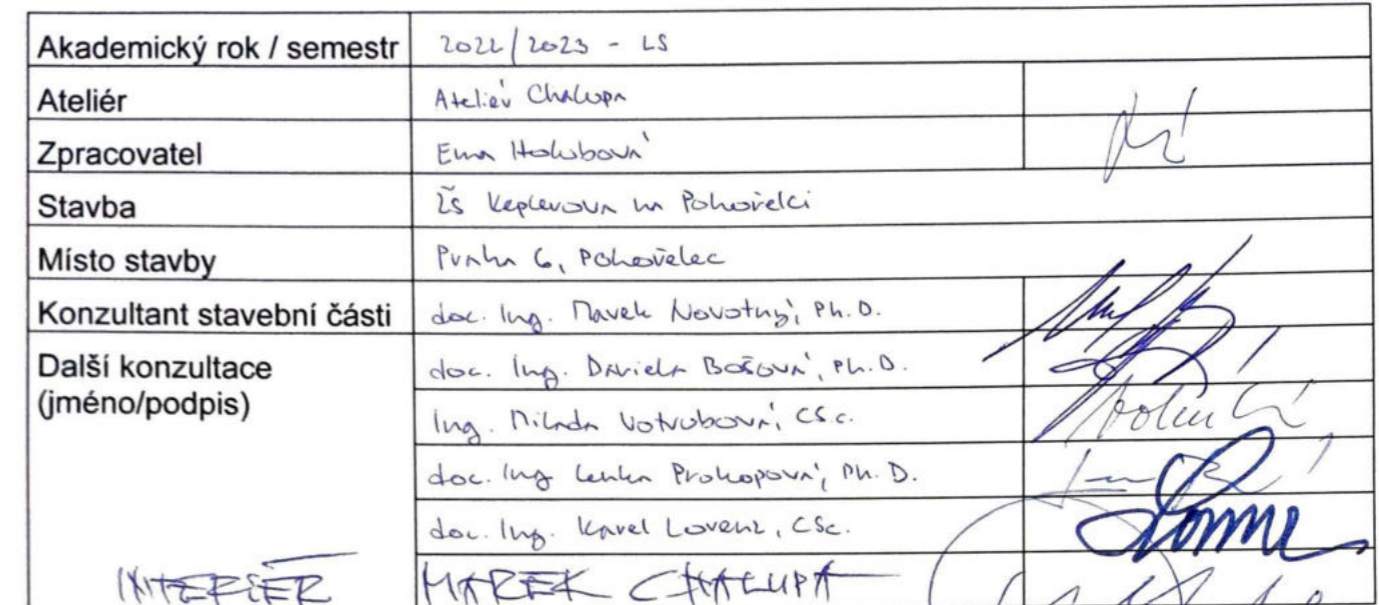 Akademický rok / semestr 2022/2023 - LS
Ateliér Ateliér Chalupa
Zpracovatel Ema Holubová
Stavba ZŠ Keplerova na Pohořelci
Místo stavby Praha 6, Pohořelec
Konzultant stavební části doc. Ing. Marek Novotný, Ph.D.
Další konzultace doc. Ing. Daniela Bošová, Ph.D.
(jméno/podpis)
Ing. Milada Votrubová, CSc.
doc. Ing Lenka Prokopová, Ph.D.
doc. Ing. Karel Lorenz, CSc.
INTERIÉR MAREK CHALUPA